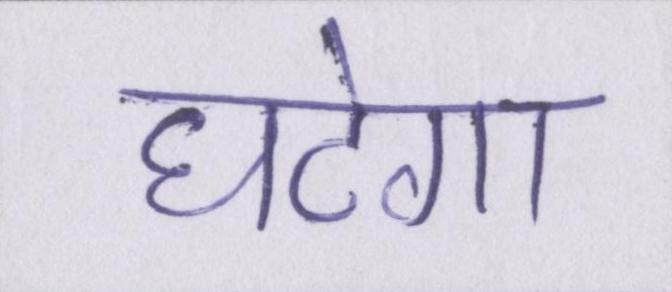 घटेगा